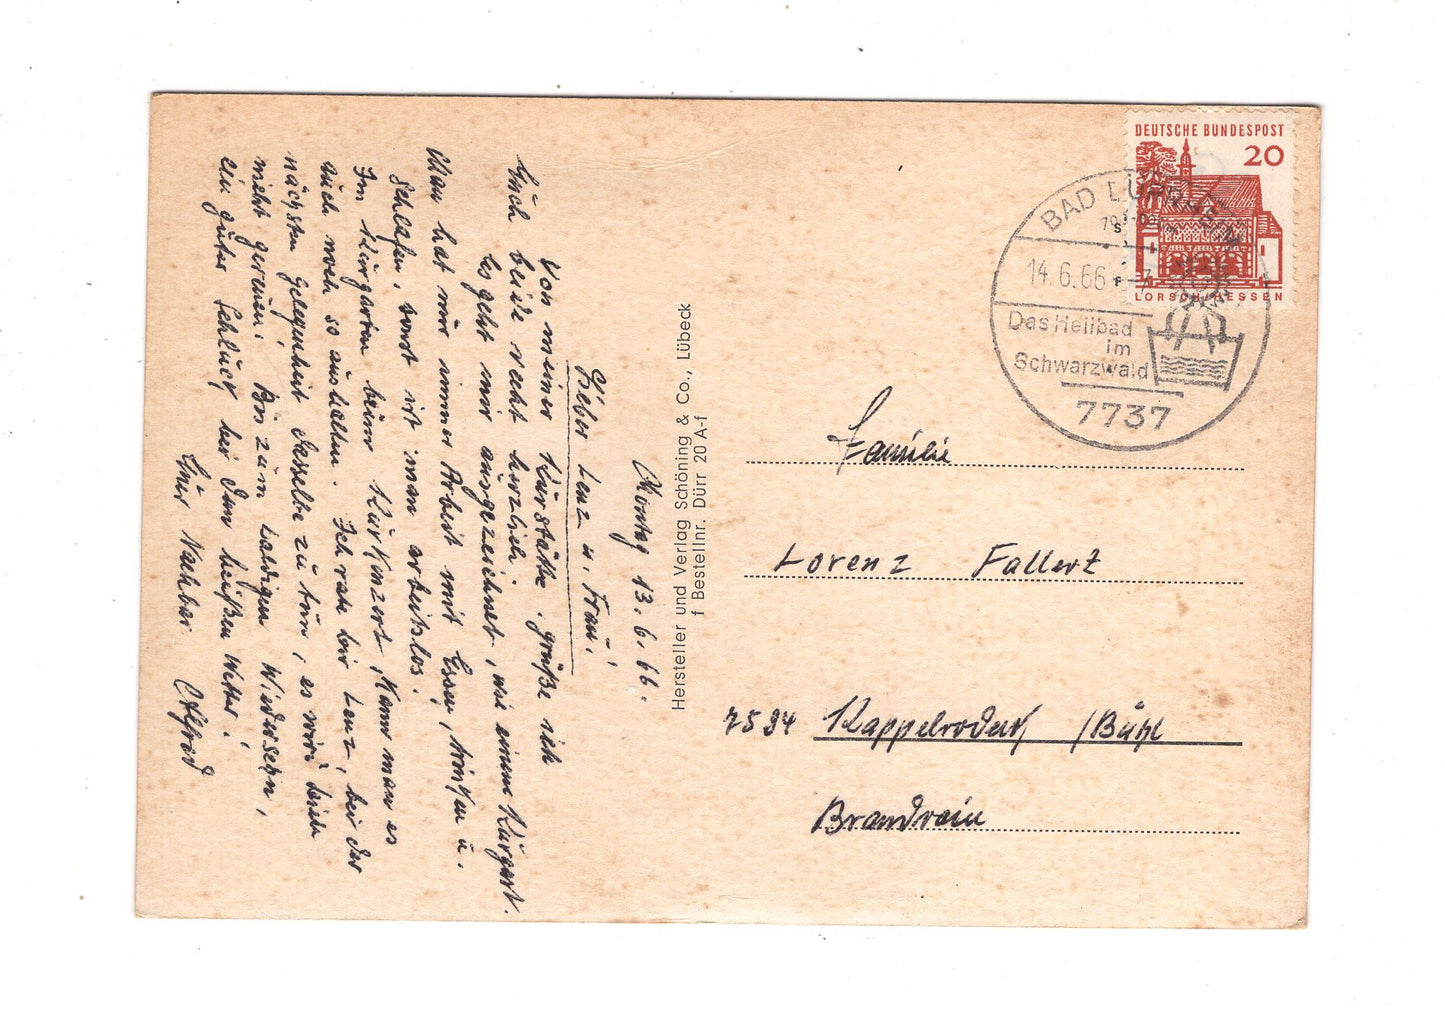 Montag 13.6.66.
Lieber Lenz u. Frau!
Von meiner Kurstätte grüße ich
Euch beide recht herzlich.
Es geht mir ausgezeichnet, wie einem Kurgast.
Man hat nur immer Arbeit mit Essen, trinken u.
schlafen, sonst ist man arbeitslos.
Im Kurgarten beim Kurkonzert, kann man es
auch noch so aushalten. Ich rate dir Lenz, bei der
nächsten Gelegenheit dasselbe zu tun, es wird dich
nicht gereuen! Bis zum baldigen Wiedersehn,
ein guter Schluck bei dem heißen Wetter!
Euer Nachbar Alfred
Hersteller und Verlag Schöning & Co., Lübeck
f Bestellnr. Dürr 20 A-f
DEUTSCHE BUNDESPOST
20
LORSCH/HESSEN
BAD DÜRRHEIM
14.6.66
Das Heilbad
im
Schwarzwald
7737
Familie
Lorenz Fallert
7594 Kappelrodeck /Bühl
Brandrain